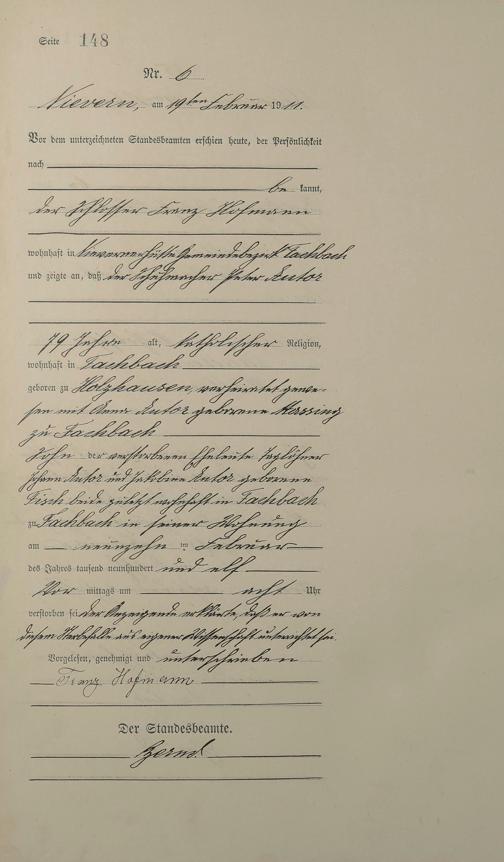 Seite 148
Nr. 6
Nievern, am 19ten Februar 1911.
Vor dem unterzeichneten Standesbeamten erschien heute, der Persönlichkeit
nach
be kannt,
der Schlosser Franz Hofmann
wohnhaft in Nievernerhütte Gemeindebezirk Fachbach
und zeigte an, daß der Schuhmacher Peter Kutor
79 Jahre alt, katholischer Religion,
wohnhaft in Fachbach
geboren zu Holzhausen, verheiratet gewe-
sen mit Anna Kutor geborene
zu Fachbach
Sohn der verstorbenen Eheleute Taglöhner
Johann Kutor und Kutor geborene
Fisch beide zuletzt wohnhaft in Fachbach
zu Fachbach in seiner Wohnung
am neunzehn ten Februar
des Jahres tausend neunhundert und elf
Vor mittags um acht Uhr
verstorben sei. Der Anzeigende erklärte, daß er von
diesem Sterbefalle aus eigener Wissenschaft unterrichtet sei.
Vorgelesen, genehmigt und unterschrieben
Franz Hofmann
Der Standesbeamte.